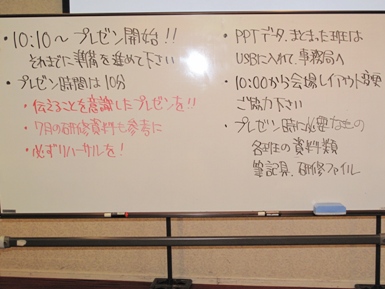 ・10:10～プレゼン開始!!
それまでに準備を進めて下さい
・プレゼン時間は10分
・伝えることを意識したプレゼンを!!
・7月の研修資料も参考に
・必ずリハーサルを!
・PPTデータ、まとまった班は
USBに入れて、事務局へ
・10:00から会場レイアウト変更
ご協力下さい
・プレゼン時に必要なもの
各班の資料類
筆記具、研修ファイル